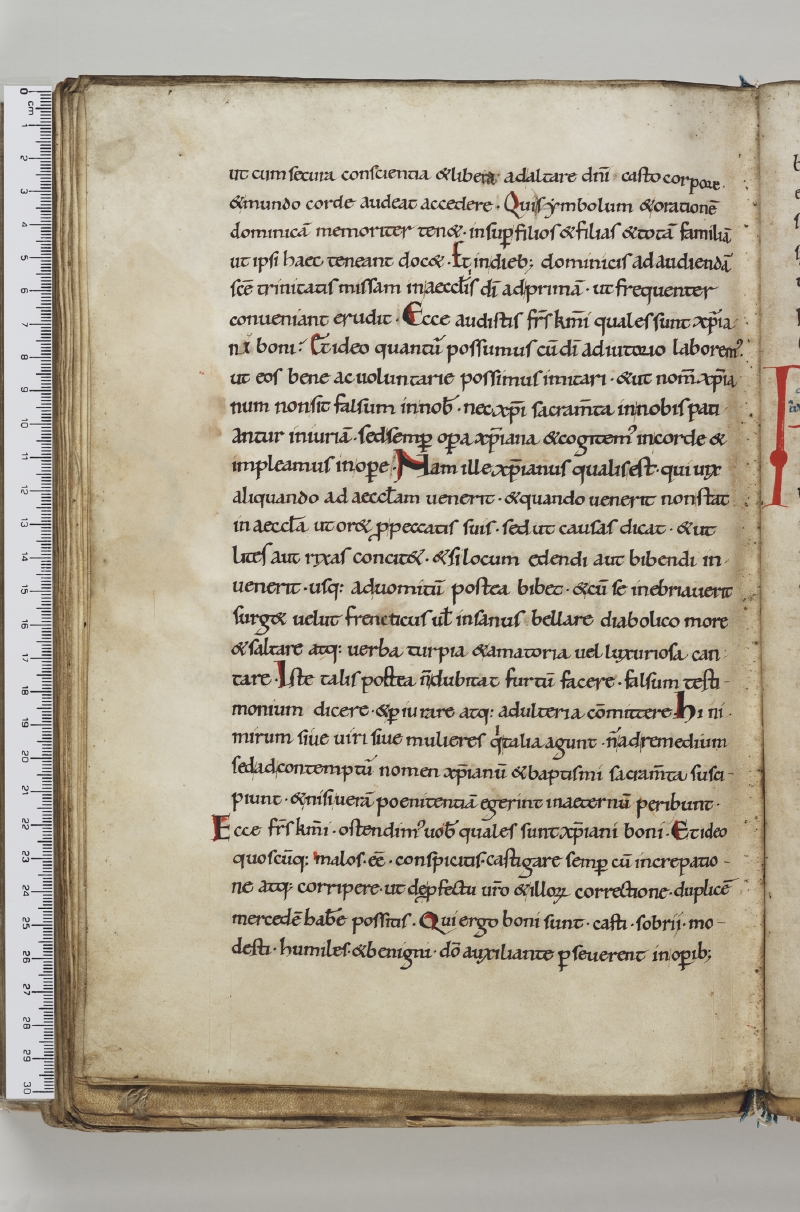 ut cum secura conscientia &libera adaltare dn̄i casto corpore
&mundo corde audeat accedere · Qui sẏmbolum &orationē
dominicā memoriter ten& · insup̄ filios &filias &totā familiā
ut ipsi haec teneant doc& · Et indieb; dominicis adaudiendā
scē trinitatis missam inaecclīs dī adprimā · ut frequenter
conueniant erudit · Ecce audistis fr̄s km̄i quales sunt xp̄ia
ni boni · Et ideo quantū possumus cū dī adiutorio laborem᾽
ut eos bene ac uoluntarie possimus imitari · &ut nom̄ xp̄ia
num non sit falsum innob̄ · nec xp̄i sacram̄ta innobis pati
antur iniuriā · sed semp̄ op̄a xp̄iana &cogitem᾽ incorde &
impleamus inope · Nam ille xp̄ianus qualis est · qui uix
aliquando ad aeccłam uenerit · &quando uenerit non stat
in aeccła ut or& ꝓpeccatis suis · sed ut causas dicat · &ut
lites aut rixas concit& · &si locum edendi aut bibendi in
uenerit · usq: aduomitū postea bibet · &cū se inebriauerit
surg& uelut freneticus uł insanus bellare diabolico more
&saltare atq: uerba turpia &amatoria uel luxuriosa can
tare · Iste talis postea n̄ dubitat furtū facere · falsum testi-
monium dicere · &ꝑiurare atq: adulteria cōmittere · hi ni
mirum siue uiri siue mulieres qͥ talia agunt · n̄ adremedium
sed ad contemptū nomen xp̄ianū &baptismi sacram̄ta susci-
piunt · &nisi uerā poenitentiā egerint inaeternū peribunt ·
Ecce fr̄s km̄i · ostendim᾽ uob̄ quales sunt xp̄iani boni · Et ideo
quoscūq: malos · eē · conspicitis · castigare semp̄ cū increpatio-
ne atq: corripere · ut de ꝑfectu ur̄o &illoꝝ correctione · duplicē
mercedē hab̄e possitis · Qui ergo boni sunt · casti · sobrij · mo-
desti · humiles · &benigni · dō auxiliante ꝑseuerent inop̄ib;